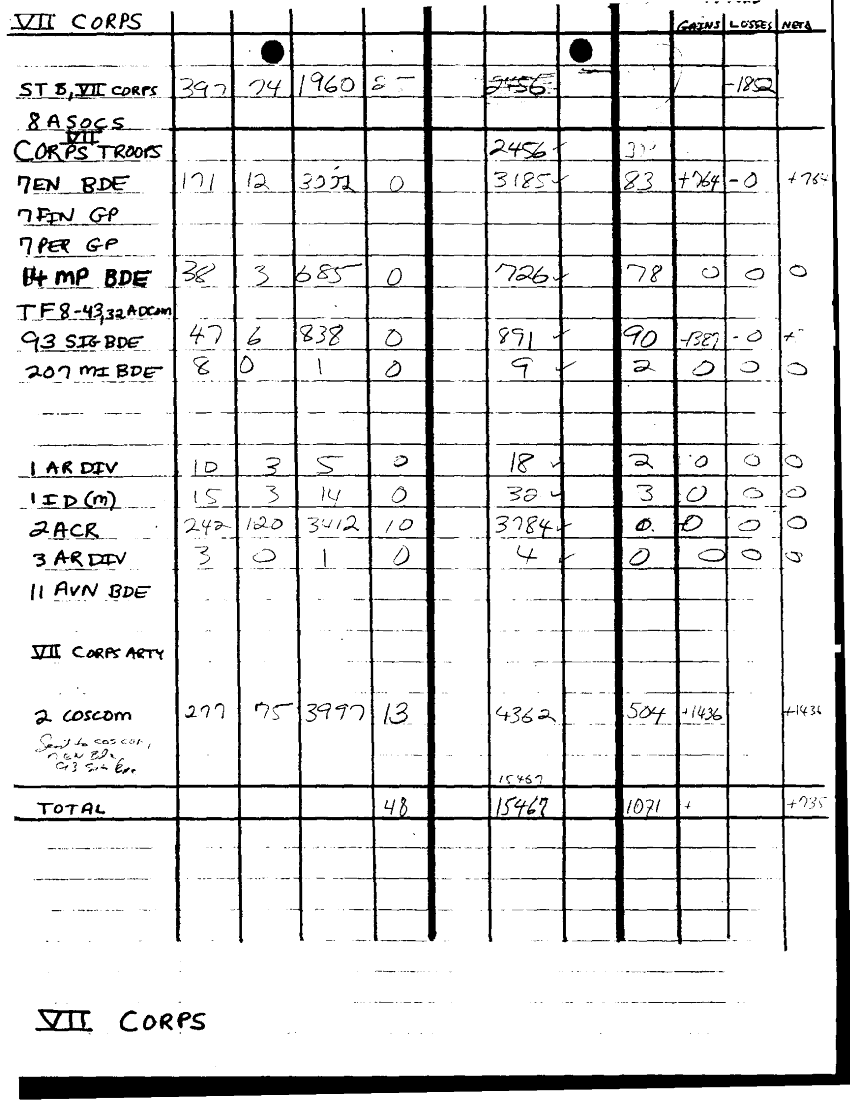 VII CORPS GAINS LOSSES NETΔ
ST B, VII CORPS 397 74 1960 2456 -1852
8 ASOCS
VII
CORPS TROOPS 2456 ✓
7 EN BDE 171 12 0 3185 ✓ 83 +764 -0
7 FIN GP
7 PER GP
14 MP BDE 38 3 685 0 726 ✓ 78 0 0 0
TF 8-43, 32 ADCOM
93 SIG BDE 47 6 838 0 891 ✓ 90 +1387 -0
207 MI BDE 8 0 1 0 9 ✓ 2 0 0 0
1 AR DIV 10 3 5 0 18 ✓ 2 0 0 0
1 ID (M) 15 3 14 0 32 ✓ 3 0 0 0
2 ACR 242 120 3412 10 3784 ✓ 0 0 0 0
3 AR DIV 3 0 1 0 4 ✓ 0 0 0 0
11 AVN BDE
VII CORPS ARTY
2 COSCOM 277 75 3997 13 4362 504 +1436 +1436
Send to COSCOM,
7 EN Bde
93 Sig Bde
15467
TOTAL 48 15467 1071 + +735
VII CORPS